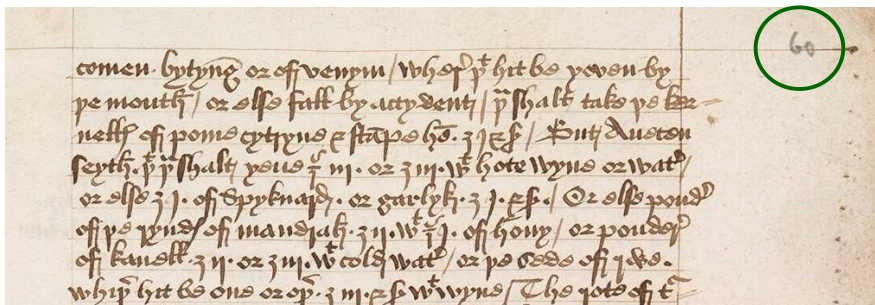 60
comen · bytyng̅ or of venym / wher̛ þͭ hit be yeven by
þe mouth / or else fall by accydent / þͧ shalt take þe ker=
nell of pome cytryne & sta̅pe he̅ · ʒ j & ſ / But Aueten
seyth · þͭ þͧ shalt yeue ʒ iij · or ʒ iiij · wͭ hote wyne or wat̉ /
or else ʒ j · of Spyknard · or garlyk · ʒ j · & ſ · / Or else poud̉
of þe rynd of mandrak · ʒ ij · wͭ ℥ j · of hony / or pouder
of kanell · ʒ ij · or ʒ iij · wͭ cold wat̉ / or þe sede of rwe ·
whiþ̉ hit be one or oþ̉ · ʒ iij · & ſ wͭ wyne / The rote of